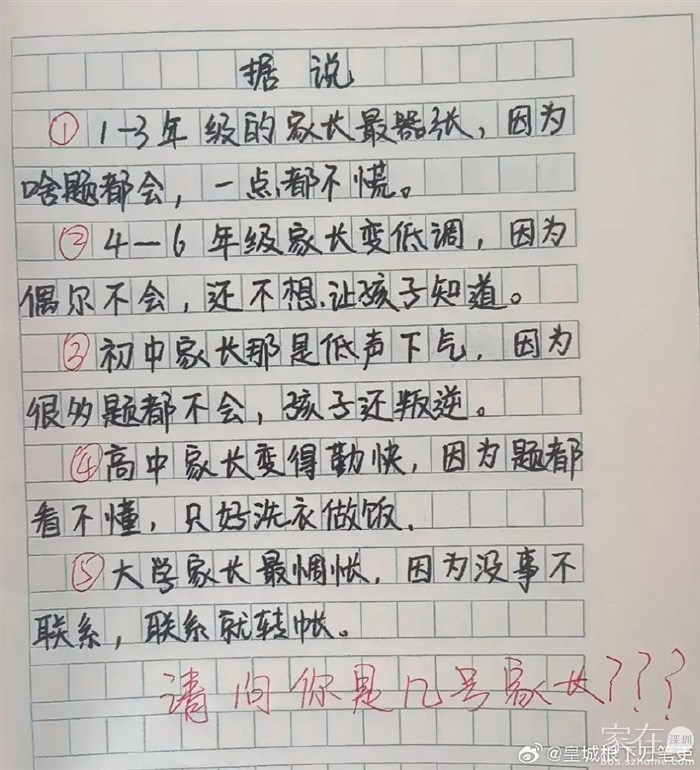 据说
①1-3年级的家长最嚣张，因为
啥题都会，一点都不慌。
②4-6年级家长变低调，因为
偶尔不会，还不想让孩子知道。
③初中家长那是低声下气，因为
很多题都不会，孩子还叛逆。
④高中家长变得勤快，因为题都
看不懂，只好洗衣做饭.
⑤大学家长最惆怅，因为没事不
联系，联系就转帐。
请问你是几号家长???
家在深圳
@皇城根下刀笔吏
bbs.szhome.com